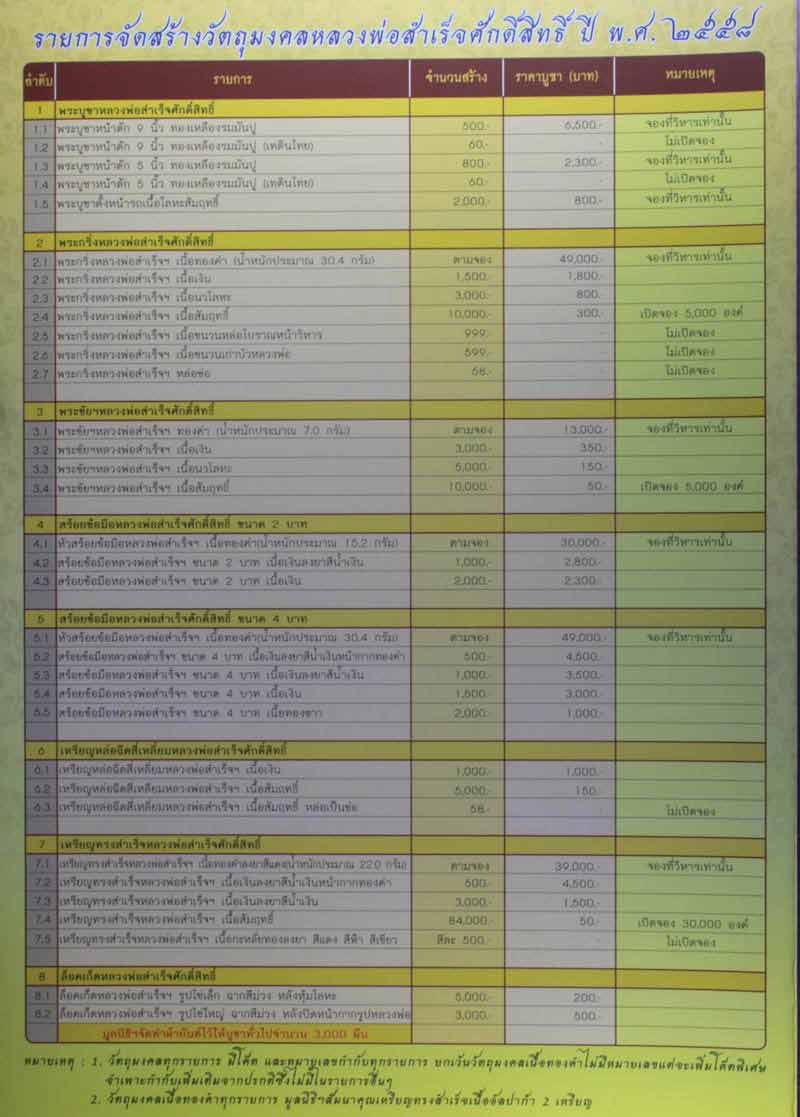 รายการจัดสร้างวัตถุมงคลหลวงพ่อสำเร็จศักดิ์สิทธิ์ ปี พ.ศ. ๒๕๕๘
ลำดับ รายการ จำนวนสร้าง ราคาบูชา (บาท) หมายเหตุ
1 พระบูชาหลวงพ่อสำเร็จศักดิ์สิทธิ์
1.1 พระบูชาหน้าตัก 9 นิ้ว ทองเหลืองรมมันปู 500.- 6,500.- จองที่วิหารเท่านั้น
1.2 พระบูชาหน้าตัก 9 นิ้ว ทองเหลืองรมมันปู (เทดินไทย) 60.- - ไม่เปิดจอง
1.3 พระบูชาหน้าตัก 5 นิ้ว ทองเหลืองรมมันปู 800.- 2,300.- จองที่วิหารเท่านั้น
1.4 พระบูชาหน้าตัก 5 นิ้ว ทองเหลืองรมมันปู (เทดินไทย) 60.- - ไม่เปิดจอง
1.5 พระบูชาตั้งหน้ารถเนื้อโลหะสัมฤทธิ์ 2,000.- 800.- จองที่วิหารเท่านั้น
2 พระกริ่งหลวงพ่อสำเร็จศักดิ์สิทธิ์
2.1 พระกริ่งหลวงพ่อสำเร็จฯ เนื้อทองคำ (น้ำหนักประมาณ 30.4 กรัม) ตามจอง 49,000.- จองที่วิหารเท่านั้น
2.2 พระกริ่งหลวงพ่อสำเร็จฯ เนื้อเงิน 1,500.- 1,800.-
2.3 พระกริ่งหลวงพ่อสำเร็จฯ เนื้อนวโลหะ 3,000.- 800.-
2.4 พระกริ่งหลวงพ่อสำเร็จฯ เนื้อสัมฤทธิ์ 10,000.- 300.- เปิดจอง 5,000 องค์
2.5 พระกริ่งหลวงพ่อสำเร็จฯ เนื้อชนวนหล่อโบราณหน้าวิหาร 999.- - ไม่เปิดจอง
2.6 พระกริ่งหลวงพ่อสำเร็จฯ เนื้อชนวนเก่าบัวหลวงพ่อ 599.- - ไม่เปิดจอง
2.7 พระกริ่งหลวงพ่อสำเร็จฯ หล่อช่อ 58.- - ไม่เปิดจอง
3 พระชัยฯหลวงพ่อสำเร็จศักดิ์สิทธิ์
3.1 พระชัยฯหลวงพ่อสำเร็จฯ ทองคำ (น้ำหนักประมาณ 7.0 กรัม) ตามจอง 13,000.- จองที่วิหารเท่านั้น
3.2 พระชัยฯหลวงพ่อสำเร็จฯ เนื้อเงิน 3,000.- 350.-
3.3 พระชัยฯหลวงพ่อสำเร็จฯ เนื้อนวโลหะ 5,000.- 150.-
3.4 พระชัยฯหลวงพ่อสำเร็จฯ เนื้อสัมฤทธิ์ 10,000.- 50.- เปิดจอง 5,000 องค์
4 สร้อยข้อมือหลวงพ่อสำเร็จศักดิ์สิทธิ์ ขนาด 2 บาท
4.1 หัวสร้อยข้อมือหลวงพ่อสำเร็จฯ เนื้อทองคำ(น้ำหนักประมาณ 15.2 กรัม) ตามจอง 30,000.- จองที่วิหารเท่านั้น
4.2 สร้อยข้อมือหลวงพ่อสำเร็จฯ ขนาด 2 บาท เนื้อเงินลงยาสีน้ำเงิน 1,000.- 2,800.-
4.3 สร้อยข้อมือหลวงพ่อสำเร็จฯ ขนาด 2 บาท เนื้อเงิน 2,000.- 2,300.-
5 สร้อยข้อมือหลวงพ่อสำเร็จศักดิ์สิทธิ์ ขนาด 4 บาท
5.1 หัวสร้อยข้อมือหลวงพ่อสำเร็จฯ เนื้อทองคำ(น้ำหนักประมาณ 30.4 กรัม) ตามจอง 49,000.- จองที่วิหารเท่านั้น
5.2 สร้อยข้อมือหลวงพ่อสำเร็จฯ ขนาด 4 บาท เนื้อเงินลงยาสีน้ำเงินหน้ากากทองคำ 500.- 4,500.-
5.3 สร้อยข้อมือหลวงพ่อสำเร็จฯ ขนาด 4 บาท เนื้อเงินลงยาสีน้ำเงิน 1,000.- 3,500.-
5.4 สร้อยข้อมือหลวงพ่อสำเร็จฯ ขนาด 4 บาท เนื้อเงิน 1,500.- 3,000.-
5.5 สร้อยข้อมือหลวงพ่อสำเร็จฯ ขนาด 4 บาท เนื้อทองขาว 2,000.- 1,000.-
6 เหรียญหล่อฉีดสี่เหลี่ยมหลวงพ่อสำเร็จศักดิ์สิทธิ์
6.1 เหรียญหล่อฉีดสี่เหลี่ยมหลวงพ่อสำเร็จฯ เนื้อเงิน 1,000.- 1,000.-
6.2 เหรียญหล่อฉีดสี่เหลี่ยมหลวงพ่อสำเร็จฯ เนื้อสัมฤทธิ์ 5,000.- 150.-
6.3 เหรียญหล่อฉีดสี่เหลี่ยมหลวงพ่อสำเร็จฯ เนื้อสัมฤทธิ์ หล่อเป็นช่อ 58.- ไม่เปิดจอง
7 เหรียญทรงสำเร็จหลวงพ่อสำเร็จศักดิ์สิทธิ์
7.1 เหรียญทรงสำเร็จหลวงพ่อสำเร็จฯ เนื้อทองคำลงยาสีแดง(น้ำหนักประมาณ 22.0 กรัม) ตามจอง 39,000.- จองที่วิหารเท่านั้น
7.2 เหรียญทรงสำเร็จหลวงพ่อสำเร็จฯ เนื้อเงินลงยาสีน้ำเงินหน้ากากทองคำ 500.- 4,500.-
7.3 เหรียญทรงสำเร็จหลวงพ่อสำเร็จฯ เนื้อเงินลงยาสีน้ำเงิน 3,000.- 1,500.-
7.4 เหรียญทรงสำเร็จหลวงพ่อสำเร็จฯ เนื้อสัมฤทธิ์ 84,000.- 50.- เปิดจอง 30,000 องค์
7.5 เหรียญทรงสำเร็จหลวงพ่อสำเร็จฯ เนื้อกะหลั่ยทองลงยา สีแดง สีฟ้า สีเขียว สีละ 500.- - ไม่เปิดจอง
8 ล็อคเก็ตหลวงพ่อสำเร็จศักดิ์สิทธิ์
8.1 ล็อคเก็ตหลวงพ่อสำเร็จฯ รูปไข่เล็ก ฉากสีม่วง หลังหุ้มโลหะ 5,000.- 200.-
8.2 ล็อคเก็ตหลวงพ่อสำเร็จฯ รูปไข่ใหญ่ ฉากสีม่วง หลังปิดหน้ากากรูปหลวงพ่อ 3,000.- 500.-
มูลนิธิฯจัดทำผ้ายันต์ไว้ให้บูชาทั่วไปจำนวน 3,000 ผืน
หมายเหตุ : 1. วัตถุมงคลทุกรายการ มีโค๊ด และหมายเลขกำกับทุกรายการ ยกเว้นวัตถุมงคลเนื้อทองคำไม่มีหมายเลขแต่จะเพิ่มโค๊ดพิเศษ
จำเพาะกำกับเพิ่มเติมจากปรกติซึ่งไม่มีในรายการอื่นๆ
2. วัตถุมงคลเนื้อทองคำทุกรายการ มูลนิธิฯสัมนาคุณเหรียญทรงสำเร็จเนื้ออัลปาก้า 2 เหรียญ